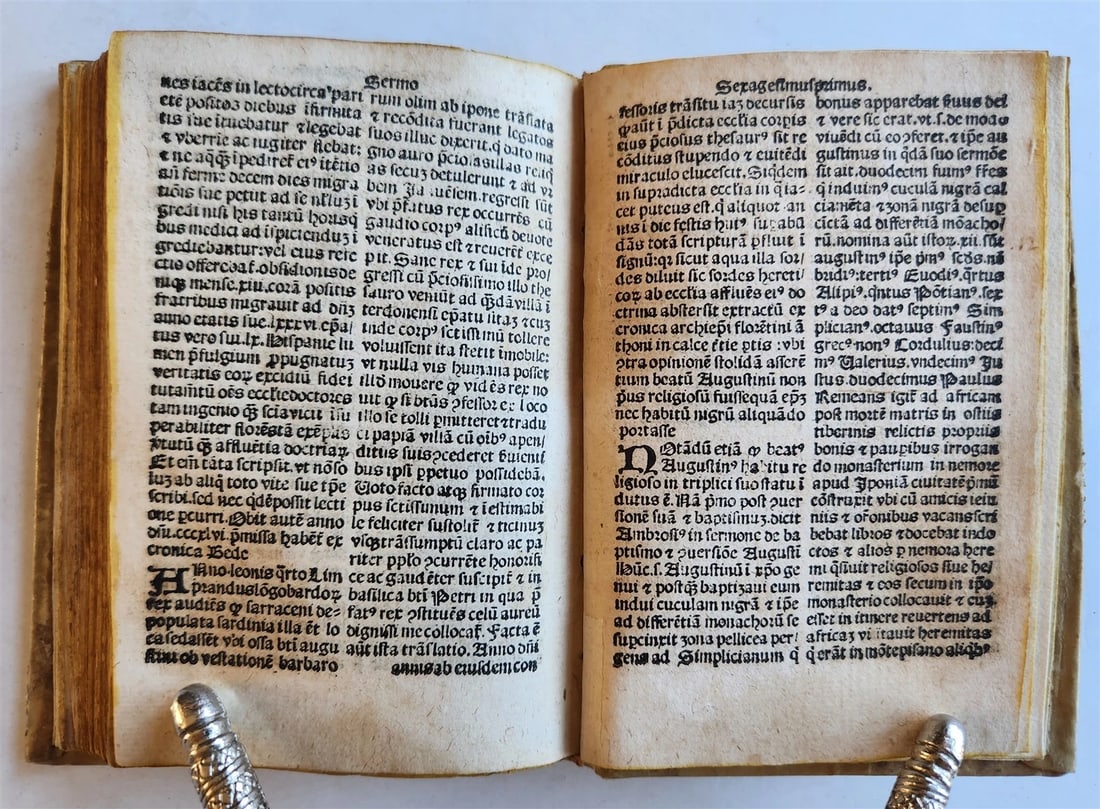 Sermo
nes iacẽs in lectocircaꝰpari
etẽ positoʒ diebus ĩfirmita
tis sue ituebatur ⁊legebat
⁊ vberrie ac iugiter flebat:
⁊ ne aq̃ꝫ ĩpediret̃ eiꝰ itẽtio
añ ferme decem dies migra
tiõis sue petiit ad se
greãi nisi his tantũ horisqͥ
bus medici ad ĩspiciendũʒ ĩ
grediebantur: vel eius refe
ctio offereba t̃.obsidionis de
niqꝫ mense.xiii.corã positis
fratribus migrauit ad dñʒ
anno etatis sue.lxxxvi epã/
tus vero sui.lx. Hispanie lu
men p̃fulgium ꝓpugnatuʒ
veritatis coꝝ excidiũ fidei
tutam̃tũ oẽs ecc̃liedoctores
tam ingenio ꝙ̃ sciavicit ĩsu
perabiliter florẽstã exẽplis
ꝟtutũ ꝙ̃ affluẽtia doctriaꝝ
Et em̃ tãta scripsit. vt nõso
luʒ ab aliq̃ toto vite sue tp̃e
scribi. sed nec qdẽpossit lecti
one ꝑcurri. Obit autẽ anno
dñi.cccxlvi. p̃missa habẽt̃ ex
cronica Bede
ANno leonis q̃rto Lim
prandus lõgobardoꝝ
rex audiẽs ꝙ sarraceni de=
populata sardinia illa ẽt lo
ca sedassẽt vbi ossa bt̃i augu
stini ob vestationẽ barbaro
rum olim ab ipone trãslata
⁊ recõdita fuerant legatos
suos illuc dixerit. q̃ dato ma
gno auro p̃cio
as secuʒ detulerunt ⁊ ad vr
bem regressi sũt
vbi p̃fatus rex occurrẽs cũ
gaudio corpꝰ alisctĩ deuote
veneratus est ⁊ reuerẽt̃ exce
pit. Sane rex ⁊ sui ide pro/
gressi cũ p̃ciosissimo illo the
sauro veniũt ad q̃dã villã ĩ
terdonensi ep̃atu sitaʒ ⁊ cuʒ
inde corpꝰ sctissimũ tollere
voluissent ita stetit ĩmobile:
vt nulla vis humana posset
illð mouere ꝙ vidẽs rex no
uit ꝙ si btũs ꝯfessor ex loco
illo se tolli ꝑmitteret ⁊ tradu
ci papiã villã cũ oĩbꝰ apen/
ditus suis ꝯcederet
bus ipsi ꝑpetuo possidebã.
Uoto facto atqꝫ firmato cor
pus sctissimum ⁊ ĩestimabi
le feliciter sustolit̃ ⁊ ticinuʒ
vsqꝫ trãssumptũ claro ac pa
riter pp̃lo ꝯcurrẽte honorifi
ce ac gaudẽter suscipit̃ ⁊ in
basilica bt̃i Petri in qua p̃
fatꝰ rex ꝯstituẽs celũ aureũ
dignissime collocat̃. Facta ẽ
aũt ista trãslatio. Anno dñi
annis ab eiusdem con
Sexagesimusprimus.
fessoris trãsitu iaʒ decursis
q̃aũt ĩ p̃dicta ecclia corpis
eius p̃ciosus thesaurꝰ sit re
cõditus stupendo ⁊ euidẽti
miraculo elucescit. Siq̃dem
in supradicta ecclia in q̃ ia=
cet puteus est. q̃ aliquot an
nis ĩ die festis huiꝰ supabũ
dãs totã scripturã ꝓfluit ĩ
signũ: ꝙ sicut aqua illa sor/
des diluit sic sordes hereti/
coꝝ ab ecclia affluẽs eiꝰ do
ctrina abstersit extractũ ex
cronica archiep̃i florẽtini ã
thoni in calce ẽtie ptis : vbi
ꝯtra opinionẽ stolidã asserẽ
tium beatũ Augustinũ non
p̃us religiosũ fuissequã ep̃ʒ
nec habitũ nigrũ aliquãdo
portasse
NOtãdũ etiã ꝙ beatꝰ
Augustinꝰ habitu re
ligioso in triplici suo statu ĩ
dutus ẽ. Nã p̃mo post ꝯuer
sionẽ suã ⁊ baptismuʒ. dicit
Ambrosiꝰ in sermone de ba
ptismo ⁊ ꝯuersiõe Augusti
Hũc.s. Augustinũ ĩ xp̃o ge
nui ⁊ postq̃ʒ baptizaui eum
indui cuculam nigrã ⁊ ip̃e
ad differẽtiã monachorũ se
supcinxit zona pellicea per/
gens ad Simplicianum q̃
bonus apparebat fruus dei
⁊ vere sic erat. vt.s. de moã
viuẽdi cũ eo ꝯferet. ⁊ ip̃e au
gustinus in q̃dã suo sermõe
sit ait. duodecim fuimꝰ ff̃es
q̃ induimꝰ cuculã nigrã cal
ciamẽta ⁊ zonã nigrã desup
cictã ad differẽtiã mõacho/
rũ. nomina aũt istoꝝ.xii. sũt
augustinꝰ ip̃e p̃mꝰ sc̃ds. ne
bridiꝰ: tertiꝰ Euodiꝰ. q̃rtus
Alipiꝰ. q̃ntus Põtianꝰ. sex
tꝰ a deo datꝰ septimꝰ Sim
plicianꝰ. octauus Faustinꝰ
grecꝰ nonꝰ Cordulius: deci
mꝰ Ualerius. vndecimꝰ Ju
stus. duodecimus Paulus
Remeans igit̃ ad africam
post mortẽ matris in ostiis
tiberinis relictis propriis
bonis ⁊ pauꝑibus irrogan
do monasterium in nemore
apud Jponiã ciuitatẽp̃mũ
cõstruxit vbi cũ amicis ieiu
niis ⁊ or̃onibus vacansscri
bebat libros ⁊ docebat indo
ctos ⁊ alios ꝑ nemora here
mi q̃siuit religiosos siue he/
remitas ⁊ eos secum in ip̃o
monasterio collocauit ⁊ cuʒ
esset in itinere reuertens ad
africaʒ visitauit heremitas
q̃ erãt in mõtepisano aliq̃bꝰ